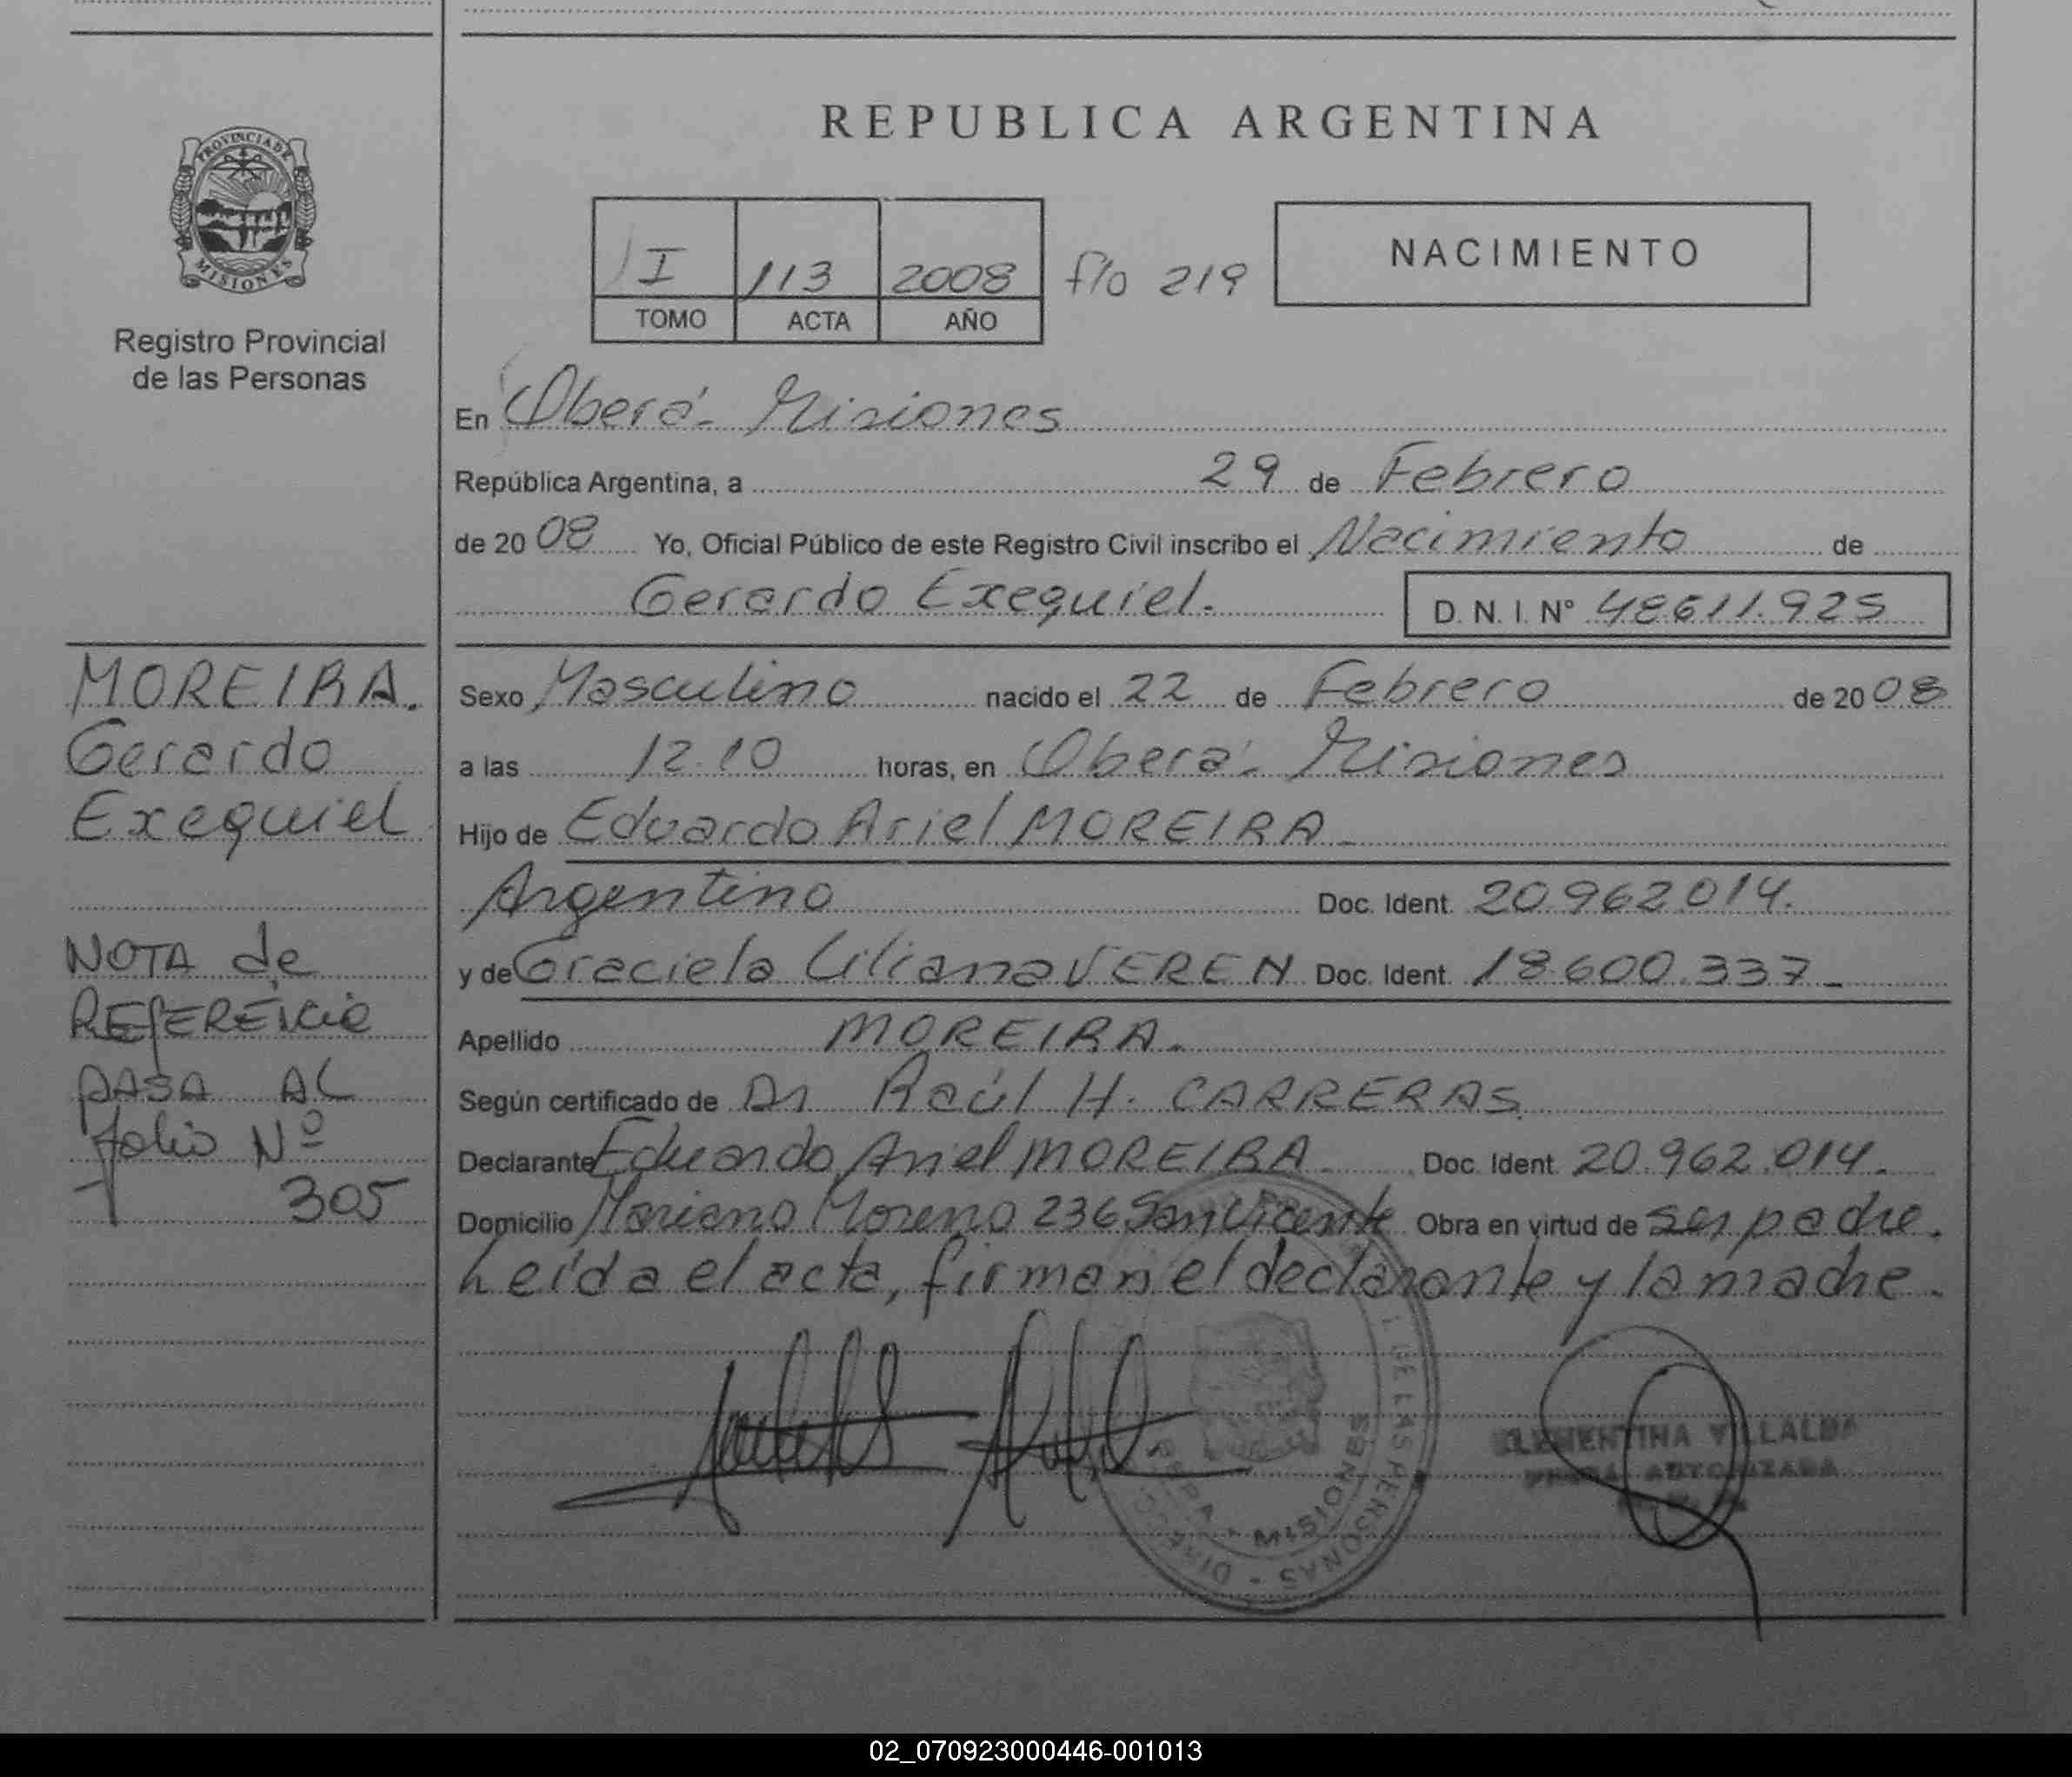 REPUBLICA ARGENTINA
PROVINCIA DE
MISIONES
Registro Provincial
de las Personas
I 113 2008 f/o 219
TOMO ACTA AÑO
NACIMIENTO
En Oberá - Misiones
República Argentina, a 29 de Febrero
de 20 08 Yo, Oficial Público de este Registro Civil inscribo el Nacimiento de
Gerardo Exequiel.
D. N. I. Nº 48611.925
MOREIRA.
Gerardo
Exequiel
NOTA de
REFERENCIA
PASA AL
folio Nº
305
Sexo Masculino nacido el 22 de Febrero de 20 08
a las 12.10 horas, en Oberá - Misiones
Hijo de Eduardo Ariel MOREIRA -
Argentino Doc. Ident. 20.962.014.
y de Graciela Liliana VEREN Doc. Ident. 18.600.337 -
Apellido MOREIRA.
Según certificado de Dr Raúl H. CARRERAS
Declarante Eduardo Ariel MOREIRA Doc. Ident. 20.962.014.
Domicilio Mariano Moreno 236 San Vicente Obra en virtud de ser padre.
Leída el acta, firman el declarante y la madre.
DE LAS PERSONAS
MISIONES
CLEMENTINA VILLALBA
AUTORIZADA
02_070923000446-001013